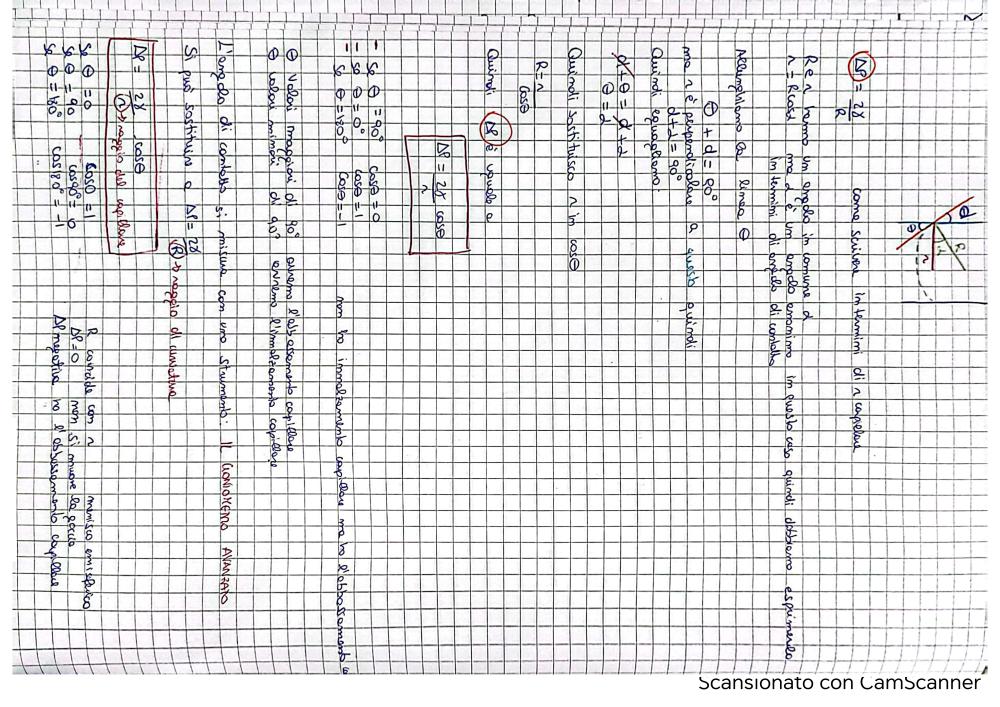 ΔP = 2γ/R come scrivere in termini di r capillare
R e r hanno un angolo in comune α
r = Rcosα ma α è un angolo anonimo in questo caso quindi dobbiamo esprimerlo
in termini di angolo di contatto
Allunghiamo la linea θ
θ + α = 90°
ma r è perpendicolare a questo quindi
α+α = 90°
Quindi eguagliamo:
α + θ = α + α
θ = α
Quindi sostituisco r in cosθ
R = r/cosθ
Quindi ΔP è uguale a
ΔP = 2γ/r cosθ
- Se θ = 90° cosθ = 0
- Se θ = 0° cosθ = 1
- Se θ = 180° cosθ = -1 non ho innalzamento capillare ma ho l'abbassamento
θ valori maggiori di 90° avremo l'abbassamento capillare
θ valori minori di 90° avremo l'innalzamento capillare
L'angolo di contatto si misura con uno strumento: IL GONIOMETRO AVANZATO
Si può sostituire a ΔP = 2γ/R → raggio di curvatura
ΔP = 2γ/r cosθ
→ raggio del capillare
Se θ = 0 cosθ = 1 R coincide con r menisco emisferico
Se θ = 90 cos90° = 0 ΔP = 0 non si muove la goccia
Se θ = 180° cos180° = -1 ΔP negativo ho l'abbassamento capillare
θ
R
α
r
θ
Scansionato con CamScanner